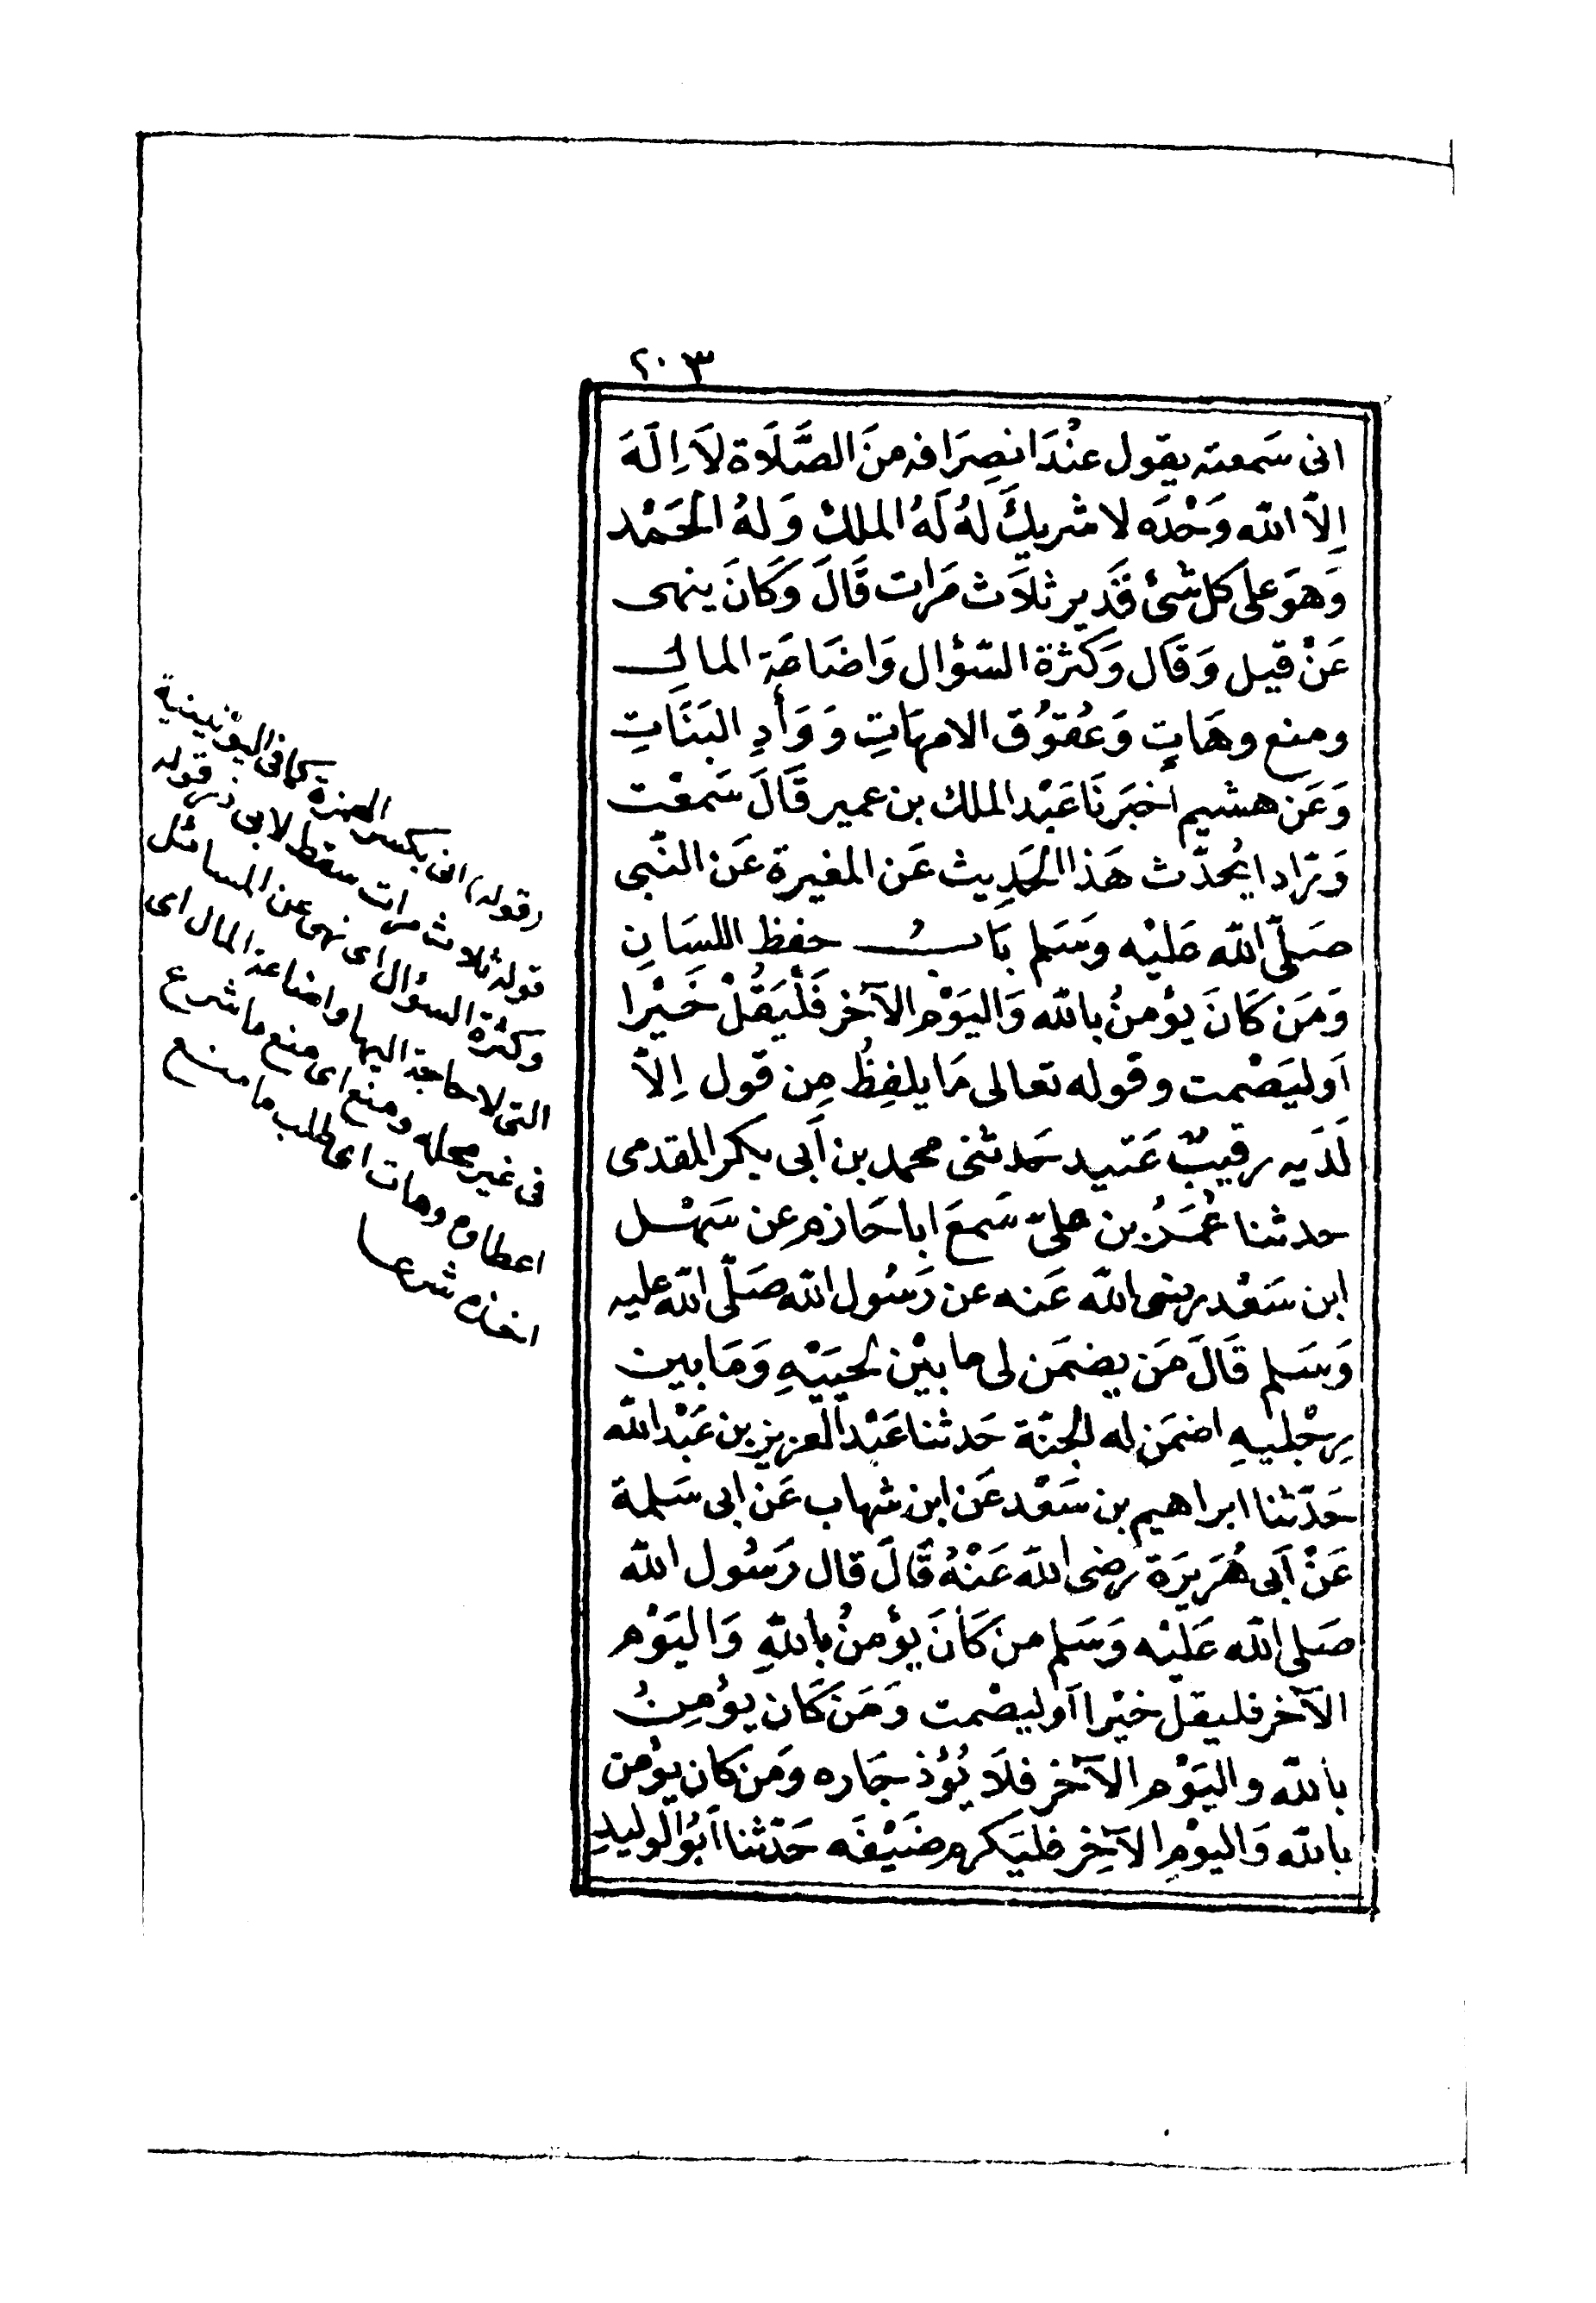 ٢٠٣
انى سَمعته يقول عنْدَ انصِرَافه منَ الصَّلَاة لَا اِلَهَ
اِلّا الله وَحْدَه لا شريكَ لهُ لَهُ الملكْ وَلهُ الحَمْد
وَهوَ على كل شئ قَدِير ثلَاث مَرات قَالَ وَكَانَ ينهى
عَنْ قيل وَقَال وَكَثرة السّؤال وَاضَاعَة المال
ومنع وهَاتٍ وَعُقوُق الامهَاتِ وَوَأدِ البَنَاتِ
وَعَن هشيم أخبَرنَا عَبْد الملك بن عمير قَالَ سَمعْت
وَرّادا يُحدّث هَذا الحَدِيث عَن المغيرة عَن النّبى
صَلّى الله عَليْه وَسَلم بَاب حفظ اللسَانِ
وَمَن كَانَ يؤمنُ بالله وَاليَوْم الآخر فَلْيَقُلْ خَيْرا
اَو ليَصْمت وقوله تعالى مَا يلفِظُ مِن قول اِلّا
لَدَيه رقيبٌ عَتيد حَدثنى محمد بن اَبى بكر المقدمى
حدثنا عُمَرُ بن علىّ سَمعَ ابا حَازم عن سَهْل
ابن سَعْد رضى الله عَنه عن رَسُول الله صَلّى الله عليه
وَسَلم قَالَ مَن يضمَن لى ما بيْن لحيَيْهِ وَمَا بين
رِجْليهِ اضمَن له الجنّة حَدثنا عَبْد العزيز بن عَبْد الله
حَدّثنا ابراهيم بن سَعْد عَن ابن شهاب عَن ابى سَلمة
عَنْ اَبى هُرَيرَة رضى الله عَنْهُ قَالَ قال رَسُول الله
صَلى الله عَليْه وَسَلم من كَانَ يؤمنُ باللهِ وَاليَوْم
الآخر فليقل خيْرا اَو ليصْمت وَمَن كَان يؤمِنُ
بالله واليَوْم الآخر فلَا يُؤذ جَاره وَمَن كان يؤمن
بالله وَاليوْمِ الآخِر فليَكرم ضَيْفَه حَدّثنا اَبوُ الوليدِ
(قوله) انى بكسر الهمزة كما فى اليونينية
قوله ثلاث مرات سقط لابى ذر قوله
وكثرة السؤال اى نهى عن المسائل
التى لا حاجة اليها واضاعة المال اى
فى غير محله ومنع اى منع ما شرع
اعطاؤه وهات اى طلب ما منع
اخذه شرعا